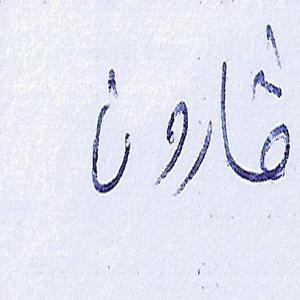 قارون